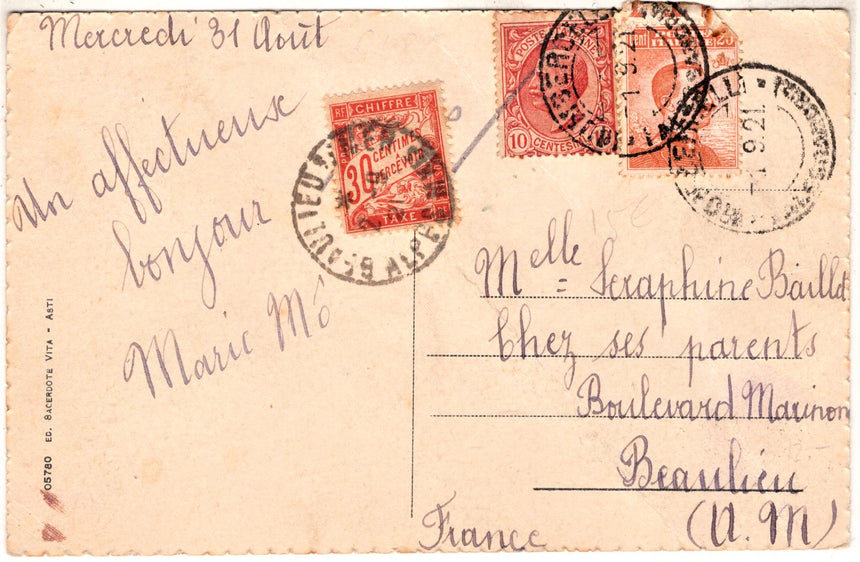 Mercredi 31 Août
Un affectueux
bonjour
Marie Mô
RF
CHIFFRE
30
CENTIMES
PERCEVOIR
TAXE
BEAULIEU
10
POSTE
CENTESIMI
9.21
9.21
Melle = Seraphine Baillet
Chez ses parents
Boulevard Marinoni
Beaulieu
(A. M)
France
05780 ED. SACERDOTE VITA - ASTI